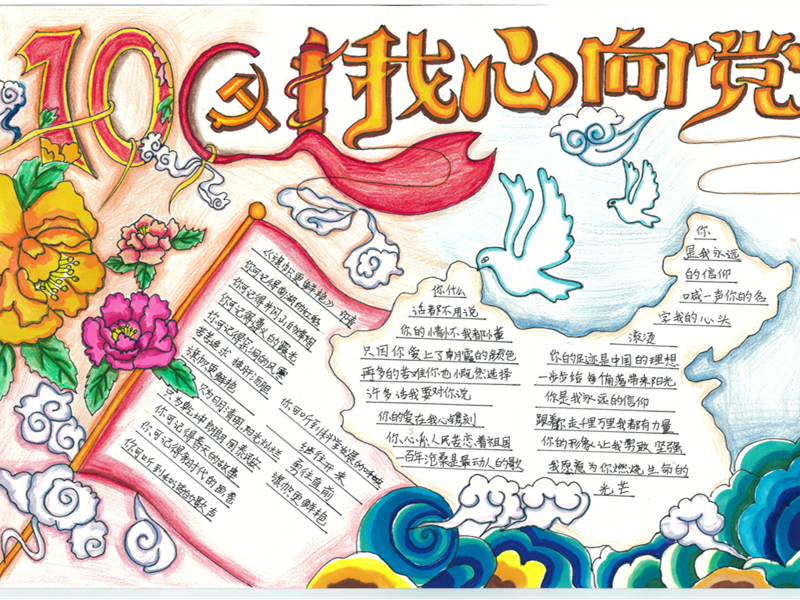 100
我心向党
《旗帜更鲜艳》 欣春
你可记得南湖的红船
你可记得井冈山的峰烟
你可记得遵义的霞光
你可记得
旗帜更鲜艳
只为日月清明,阳光灿烂
只为乾坤朗朗 国泰
你可记得春天的故事
你可记得新时代的画卷
你可听到
的歌声
你可听到科学发展的呼唤
继往开来
勇往直前
旗帜更鲜艳
你什么
话都不用说
你的情怀我都懂
只因你爱上了朝霞的颜色
再多的苦难你也
选择
许多话我要对你说
你的爱在我心镌刻
你心系人民
祖国
一百年沧桑是最动人的歌
你、
是我永远
的信仰
喊一声你的名
字我的心头
滚烫
你的足迹是中国的理想
一步步给每个角落带来阳光
你是我永远的信仰
跟着你走千里万里我都有力量
你的形象让我勇敢 坚强
我愿意为你燃烧生命的
光芒